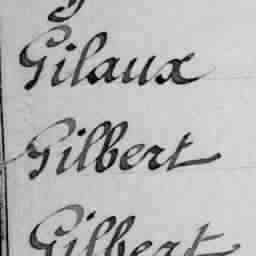 Gilaux
Gilbert
Gilbert